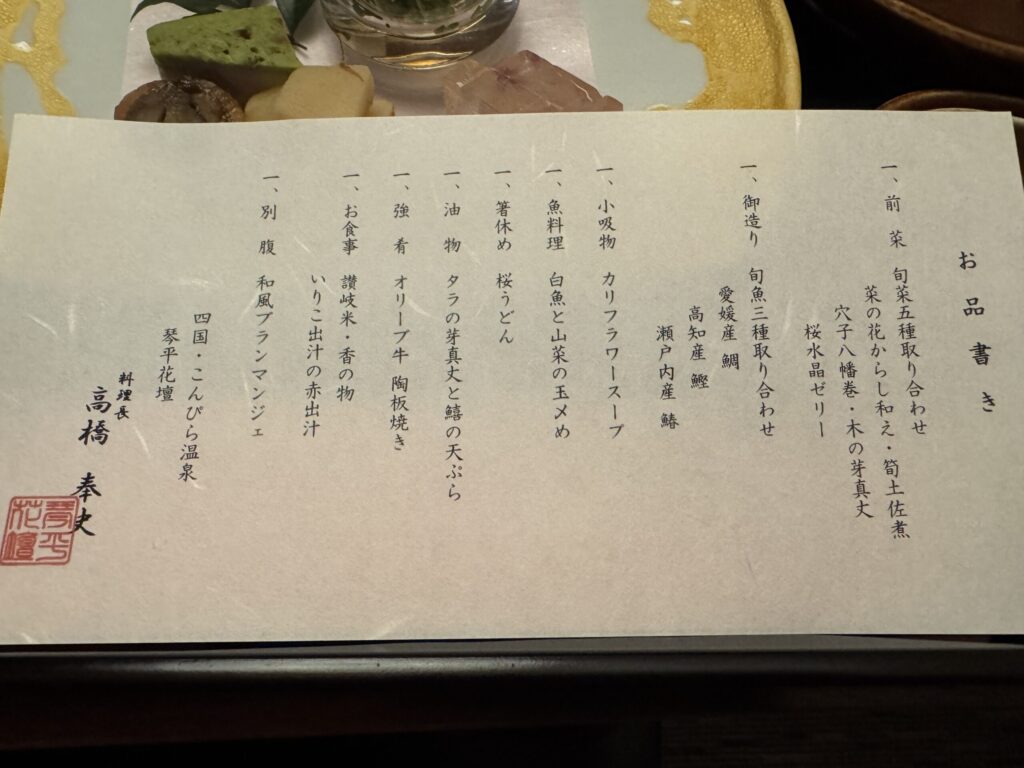 お品書き
一、前菜 旬菜五種取り合わせ
菜の花からし和え・筍土佐煮
穴子八幡巻・木の芽真丈
桜水晶ゼリー
一、御造り 旬魚三種取り合わせ
愛媛産 鯛
高知産 鰹
瀬戸内産 鰆
一、小吸物 カリフラワースープ
一、魚料理 白魚と山菜の玉〆め
一、箸休め 桜うどん
一、油物 タラの芽真丈と鱚の天ぷら
一、強肴 オリーブ牛 陶板焼き
一、お食事 讃岐米・香の物
いりこ出汁の赤出汁
一、別腹 和風ブランマンジェ
四国・こんぴら温泉
琴平花壇
料理長
高橋 奉史
琴平花壇